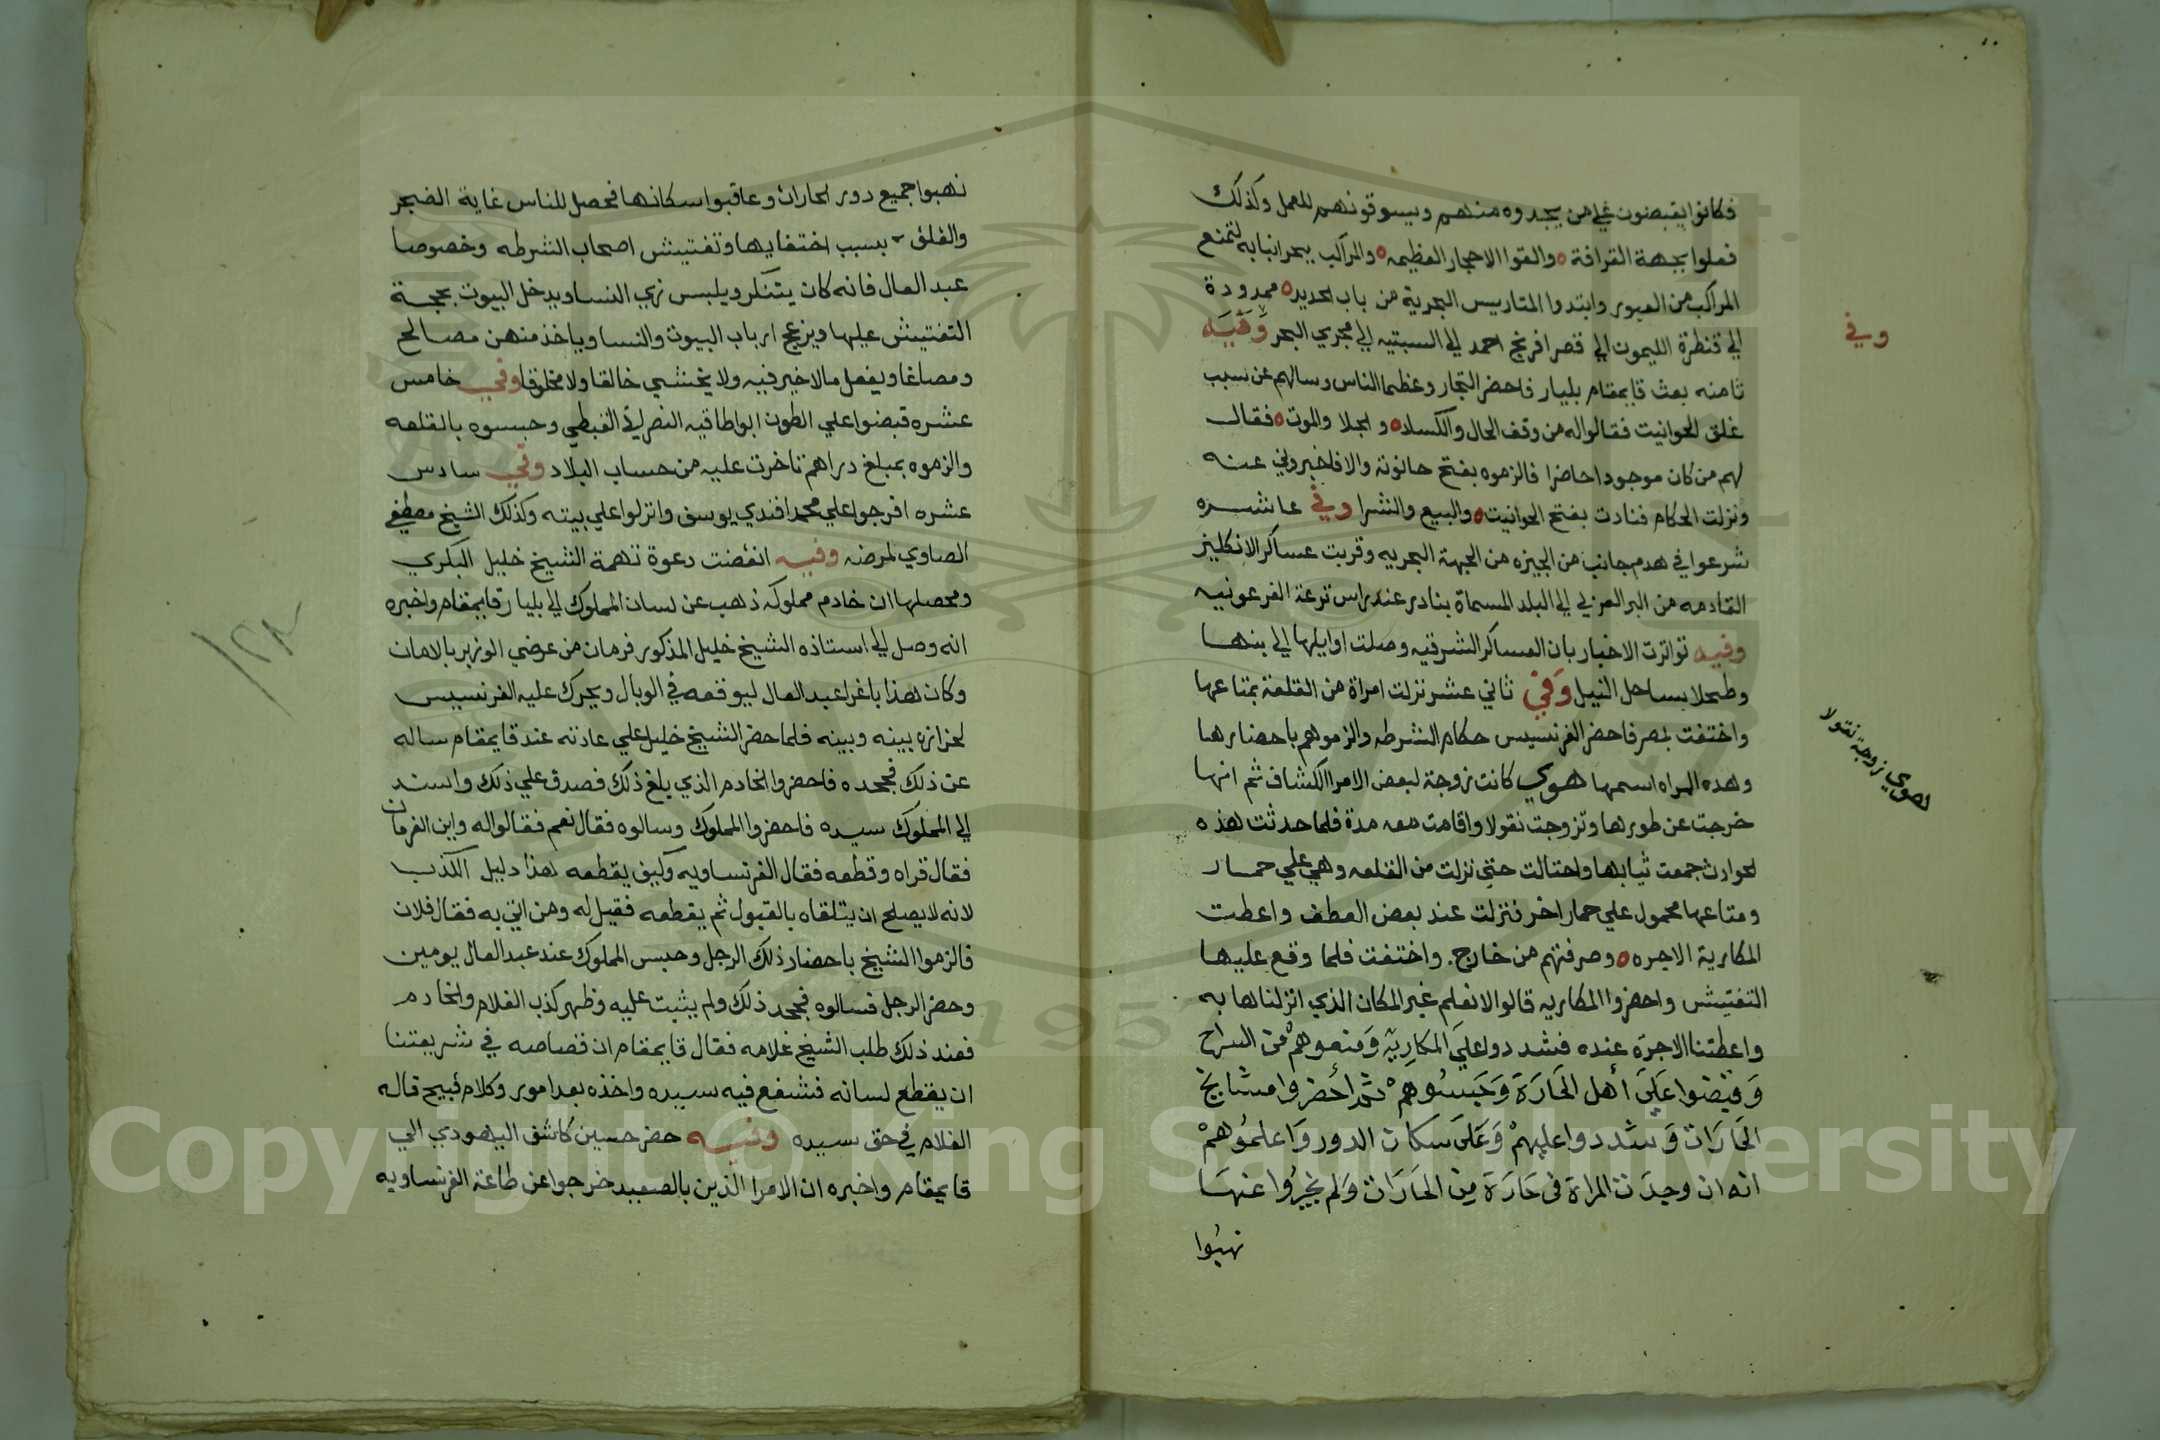 فكانوا يقبضون علي من يجدوه منهم ويسوقونهم للعمل وكذلك
فعلوا بجهة القرافة ه والقوا الاحجار العظيمه ه والمراكب ببحر انبابه لتمنع
المراكب من العبور وابتدوا المتاريس البحرية من باب الحديد ه ممدودة
الي قنطرة الليمون الي قصر افرنج احمد الي السبتيه الي مجري البحر وفيه
وفي
ثامنه بعث قايمقام بليار فاحضر التجار وعظما الناس وسالهم عن سبب
غلق الحوانيت فقالوا له من وقف الحال والكساد ه و الجلا والموت ه فقال
لهم من كان موجودا حاضرا فالزموه بفتح حانوته والا فاخبروني عنه
ونزلت الحكام فنادت بفتح الحوانيت ه والبيع والشرا وفي عاشره
شرعوا في هدم جانب من الجيزه من الجهة البحريه وقربت عساكر الانكليز
القادمه من البر الغربي الي البلد المسماة بنادر عند راس ترعة الفرعونيه
وفيه تواترت الاخبار بان العساكر الشرقيه وصلت اوايلها الي بنها
وطحلا بساحل النيل وفي ثاني عشر نزلت امراة من القلعة بمتاعها
واختفت بمصر فاحضر الفرنسيس حكام الشرطه والزموهم باحضارها
هوي زوجة نقولا
وهده المراه اسمها هوي كانت زوجة لبعض الامرا الكشاف ثم انها
خرجت عن طورها وتزوجت نقولا واقامت معه مدة فلما حدثت هذه
الحوادث جمعت ثيابها واحتالت حتي نزلت من القلعه وهي علي حمار
ومتاعها محمول علي حمار اخر فنزلت عند بعض العطف واعطت
المكارية الاجره ه وصرفتهم من خارج. واختفت فلما وقع عليها
التفتيش واحضروا المكاريه قالوا لا نعلم غير المكان الذي انزلناها به
واعطتنا الاجرة عنده فشددوا علي المكارية ومنعوهم من السراح
وقبضوا علي أهل الحارة وحبسوهم ثم أحضروا مشايخ
الحارات وشددوا عليهم وعلي سكان الدور واعلموهم
انه ان وجدت المراة في حارة من الحارات ولم يخبروا عنها
نهبوا
نهبوا جميع دور الحارات وعاقبوا سكانها فحصل للناس غاية الضجر
والقلق بسبب اختفايها وتفتيش اصحاب الشرطه وخصوصا
عبد العال فانه كان يتنكر ويلبس زي النسا ويدخل البيوت بحجة
التفتيش عليها ويزعج ارباب البيوت والنسا وياخذ منهن مصالح
ومصاغا ويفعل مالا خير فيه ولا يخشي خالقا ولا مخلوقا وفي خامس
عشره قبضوا علي الطون ابو اطاقيه النصراني القبطي وحبسوه بالقلعه
والزموه بمبلغ دراهم تاخرت عليه من حساب البلاد وفي سادس
عشره افرجوا علي محمد افندي يوسف وانزلوا علي بيته وكذلك الشيخ مصطفي
الصاوي لمرضه وفيه انفضت دعوة تهمة الشيخ خليل البكري
ومحصلها ان خادم مملوكه ذهب عن لسان المملوك الي بليار قايمقام واخبره
انه وصل الي استاذه الشيخ خليل المذكور فرمان من عرضي الوزير بالامان
١٢٨
وكان هذا باغرا عبد العال ليوقعه في الوبال ويحرك عليه الفرنسيس
لحزازه بينه وبينه فلما حضر الشيخ خليل علي عادته عند قايمقام ساله
عن ذلك فجحده فاحضروا الخادم الذي بلغ ذلك فصدق علي ذلك واسند
الي المملوك سيده فاحضروا المملوك وسالوه فقال نعم فقالوا له واين الفرمان
فقال قراه وقطعه فقال الفرنساويه وكيف يقطعه هذا دليل الكذب
لانه لا يصلح ان يتلقاه بالقبول ثم يقطعه فقيل له ومن اتي به فقال فلان
فالزموا الشيخ باحضار ذلك الرجل وحبس المملوك عند عبد العال يومين
وحضر الرجل فسالوه فجحد ذلك ولم يثبت عليه وظهر كذب الغلام والخادم
فعند ذلك طلب الشيخ غلامه فقال قايمقام ان قصاصه في شريعتنا
ان يقطع لسانه فشفع فيه سيده واخذه بعد امور وكلام قبيح قاله
الغلام في حق سيده وفيه حضر حسين كاشف اليهودي الي
قايمقام واخبره ان الامرا الذين بالصعيد خرجوا عن طاعة الفرنساويه
Copyright © King Saud University
1957